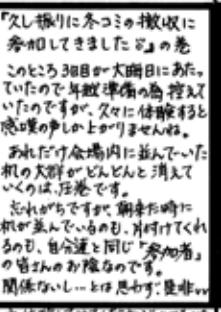 『久し振りに冬コミの撤収に
参加してきました♂』の巻
このところ3日目が大晦日にあたっ
ていたので年越準備の為控えて
いたのですが、久々に体験すると
感嘆の声しか上がりませんね。
あれだけ会場内に並んでいた
机の大群がどんどんと消えて
いくのは、圧巻です。
忘れがちですが、朝来た時に
机が並んでいるのも、片付けてくれ
るのも、自分達と同じ『参加者』
の皆さんのお陰なのです。
関係ないし…とは思わず、是非